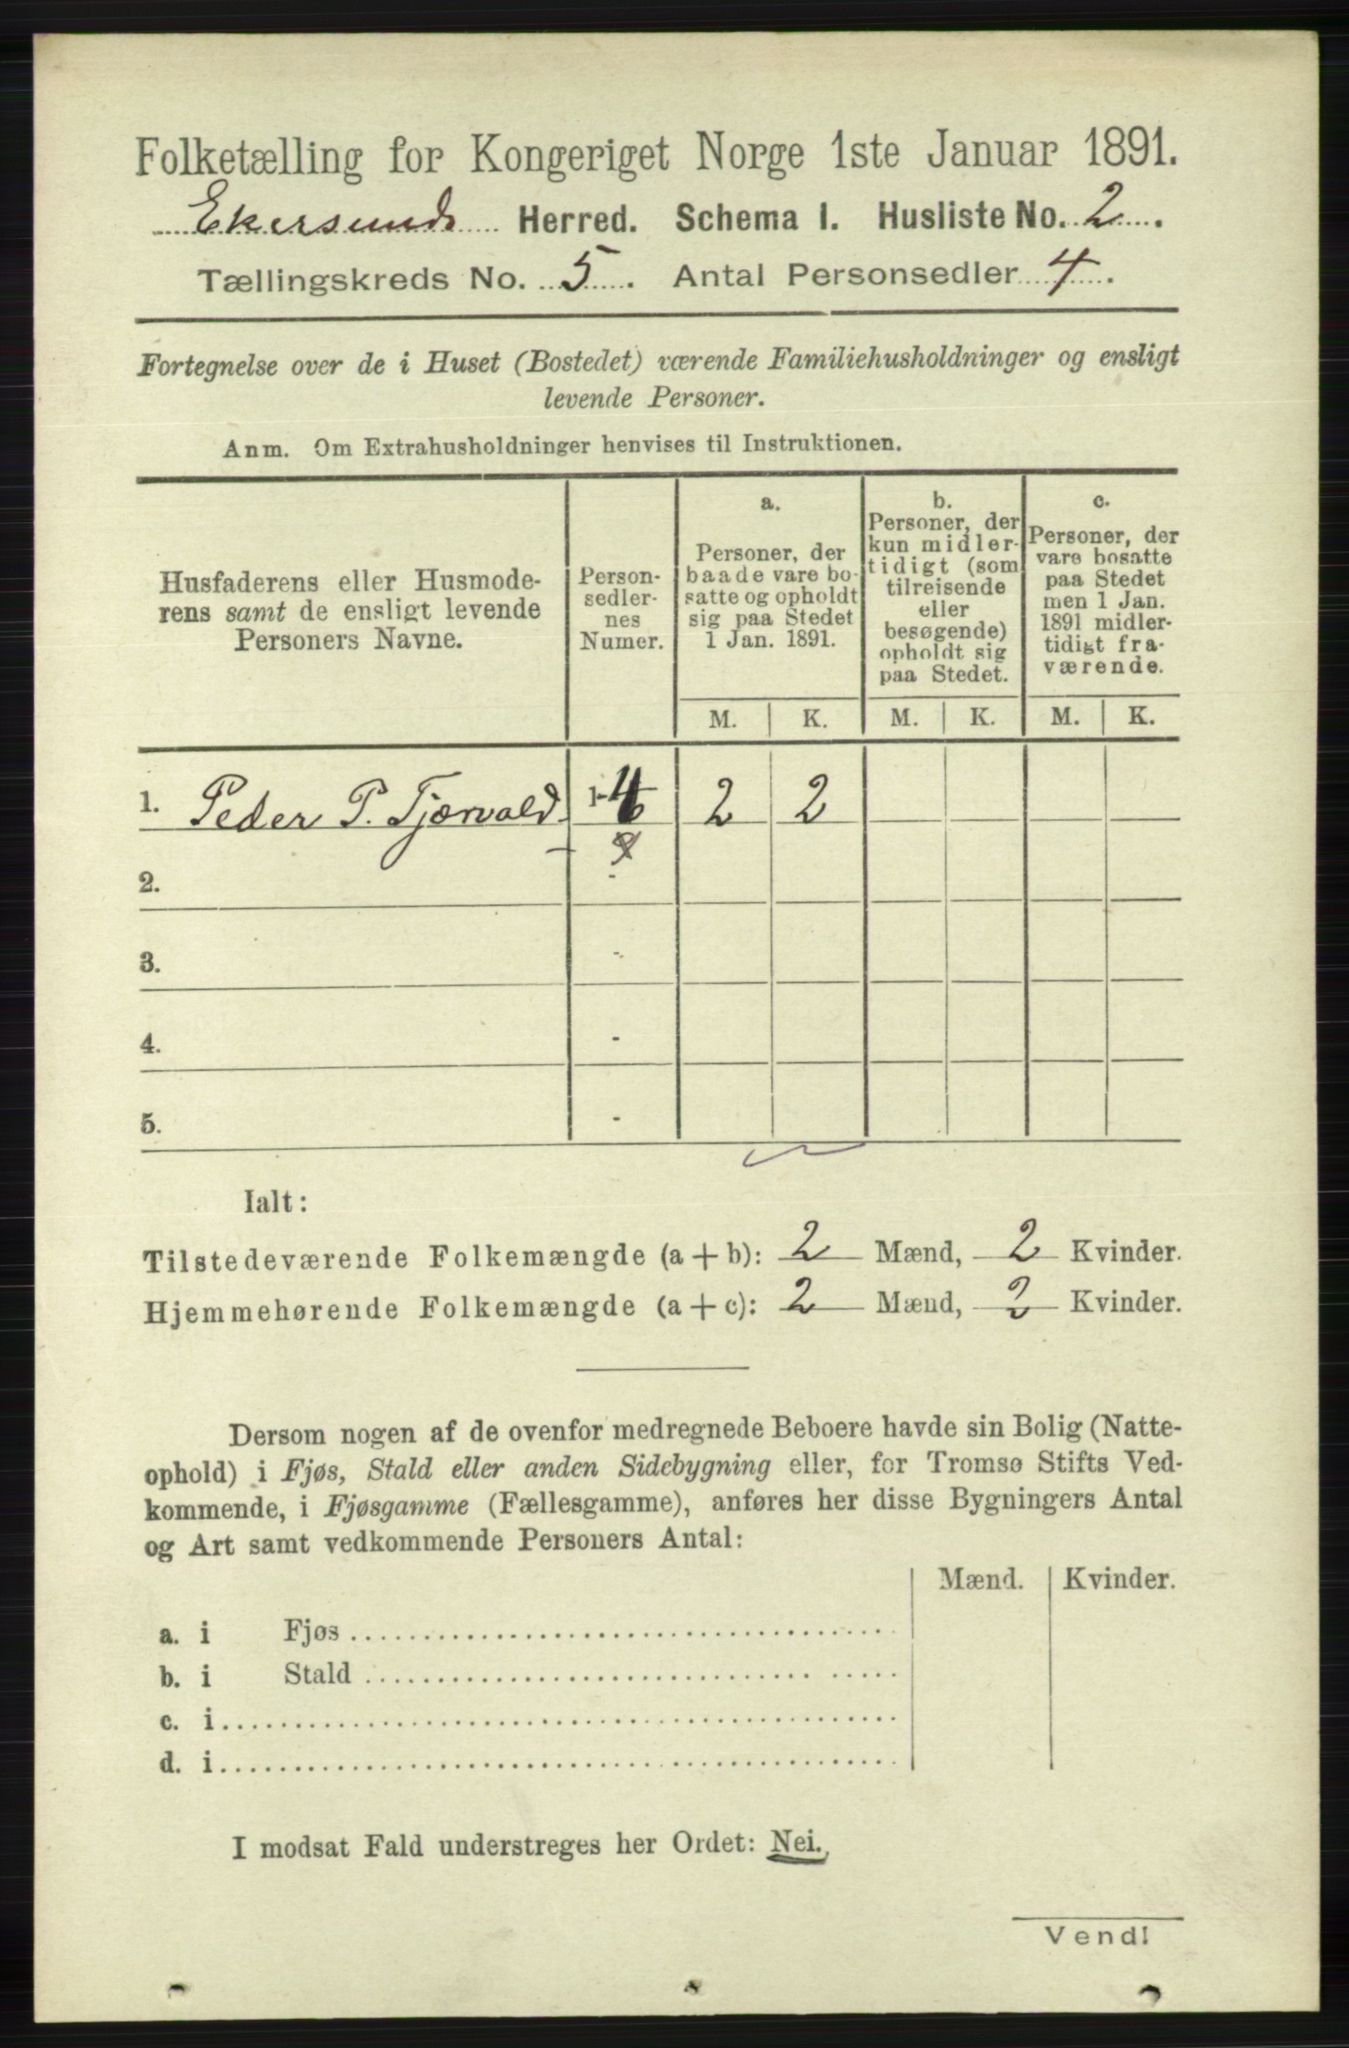 Folketælling for Kongeriget Norge 1ste Januar 1891.
Ekersunds Herred. Schema I. Husliste No. 2.
Tællingskreds No. 5. Antal Personsedler 4.
Fortegnelse over de i Huset (Bostedet) værende Familiehusholdninger og ensligt
levende Personer.
Anm. Om Extrahusholdninger henvises til Instruktionen.
Husfaderens eller Husmode-
rens samt de ensligt levende
Personers Navne.
Person-
sedler-
nes
Numer.
a.
Personer, der
baade vare bo-
satte og opholdt
sig paa Stedet
1 Jan. 1891.
b.
Personer, der
kun midler-
tidigt (som
tilreisende
eller
besøgende)
opholdt sig
paa Stedet.
c.
Personer, der
vare bosatte
paa Stedet
men 1 Jan.
1891 midler-
tidigt fra-
værende.
M. K. M. K. M. K.
1. Peder P. Tjørvald 1-4 2 2
2. -
3. -
4. -
5. -
Ialt:
Tilstedeværende Folkemængde (a + b): 2 Mænd, 2 Kvinder.
Hjemmehørende Folkemængde (a + c): 2 Mænd, 2 Kvinder.
Dersom nogen af de ovenfor medregnede Beboere havde sin Bolig (Natte-
ophold) i Fjøs, Stald eller anden Sidebygning eller, for Tromsø Stifts Ved-
kommende, i Fjøsgamme (Fællesgamme), anføres her disse Bygningers Antal
og Art samt vedkommende Personers Antal:
Mænd. Kvinder.
a. i Fjøs
b. i Stald
c. i
d. i
I modsat Fald understreges her Ordet: Nei.
Vend!